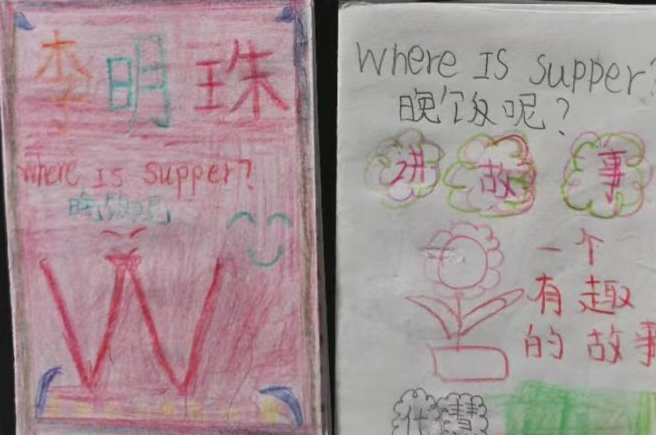 李明珠
where Is supper?
晚饭呢
W
Where Is supper?
晚饭呢?
讲故事
一个
有趣
的故事
慧